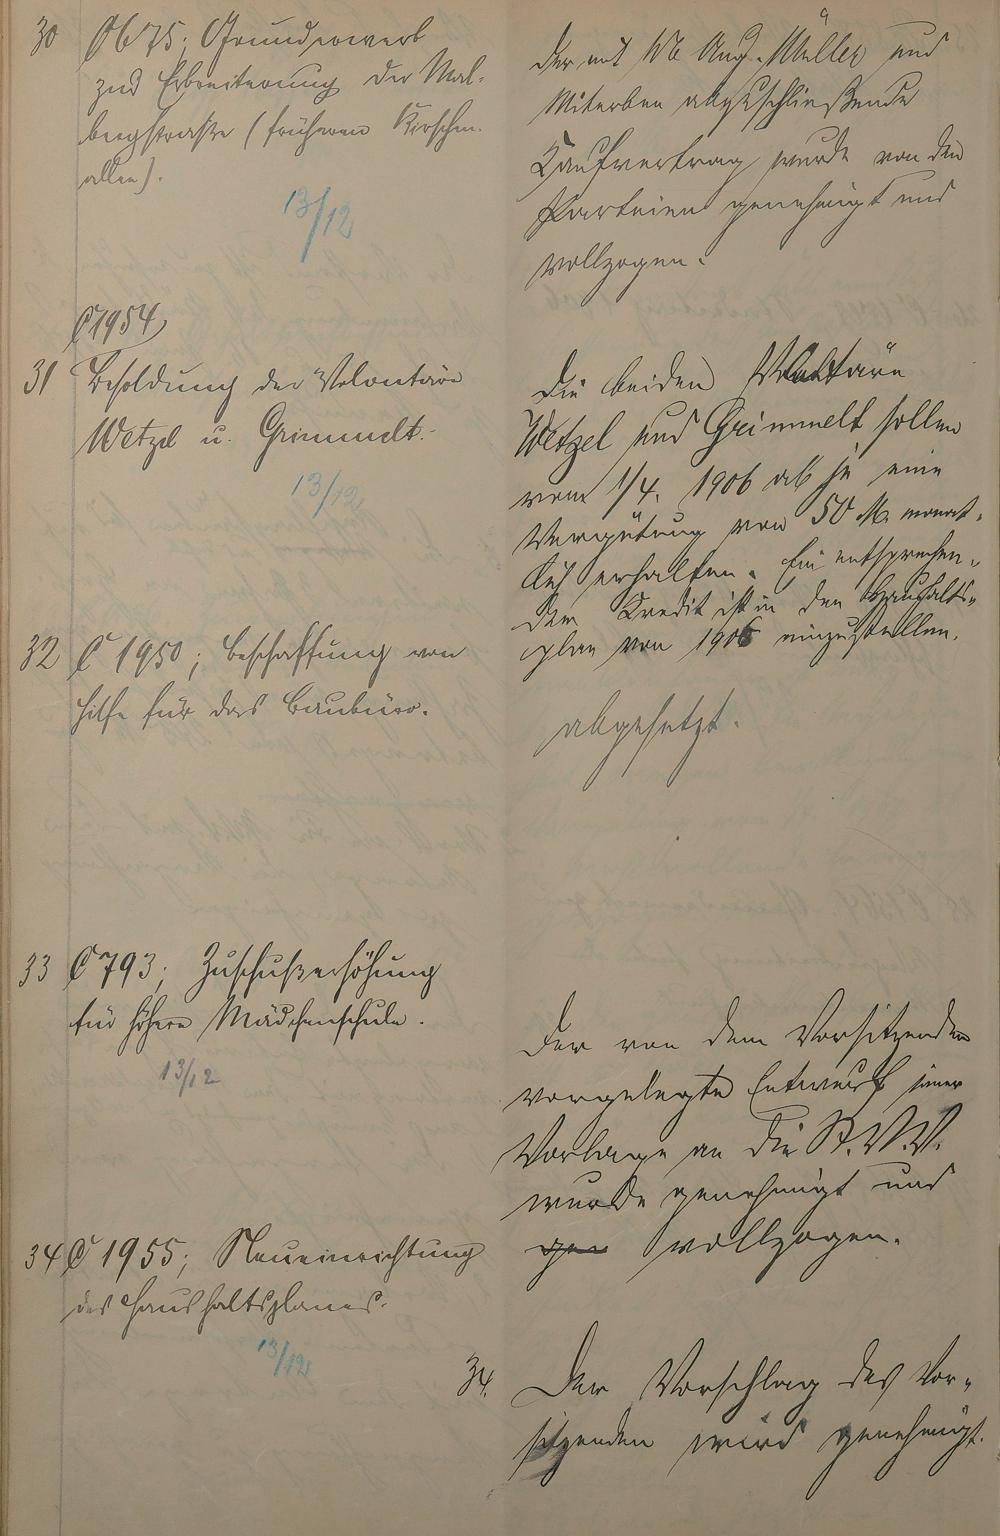 30 C 675; Grunderwerb
zur Erbreiterung der Mal-
bergstraße (früheren Kirschen-
allee).
13/12
der mit Ww Aug. Müller und
Miterben abzuschließende
Kaufvertrag wurde von den
Parteien genehmigt und
vollzogen.
C 1954
31 Besoldung der Volontäre
Wetzel u. Grimmelt.
13/12
Die beiden Volontäre
Wetzel und Grimmelt sollen
vom 1/4. 1906 ab je eine
Vergütung von 50 M. monat-
lich erhalten. Ein entsprechen-
der Kredit ist in den Haushalts-
plan von 1906 einzustellen.
32 C 1950; Beschaffung von
Hilfe für das Baubüro.
abgesetzt.
33 C 793; Zuschußerhöhung
für höhere Mädchenschule.
13/12
Der von dem Vorsitzenden
vorgelegte Entwurf einer
Vorlage an die St.V.V.
wurde genehmigt und
gen vollzogen.
34 C 1955; Neueinrichtung
des Haushaltsplanes.
13/12
34. Der Vorschlag des Vor-
sitzenden wird genehmigt.